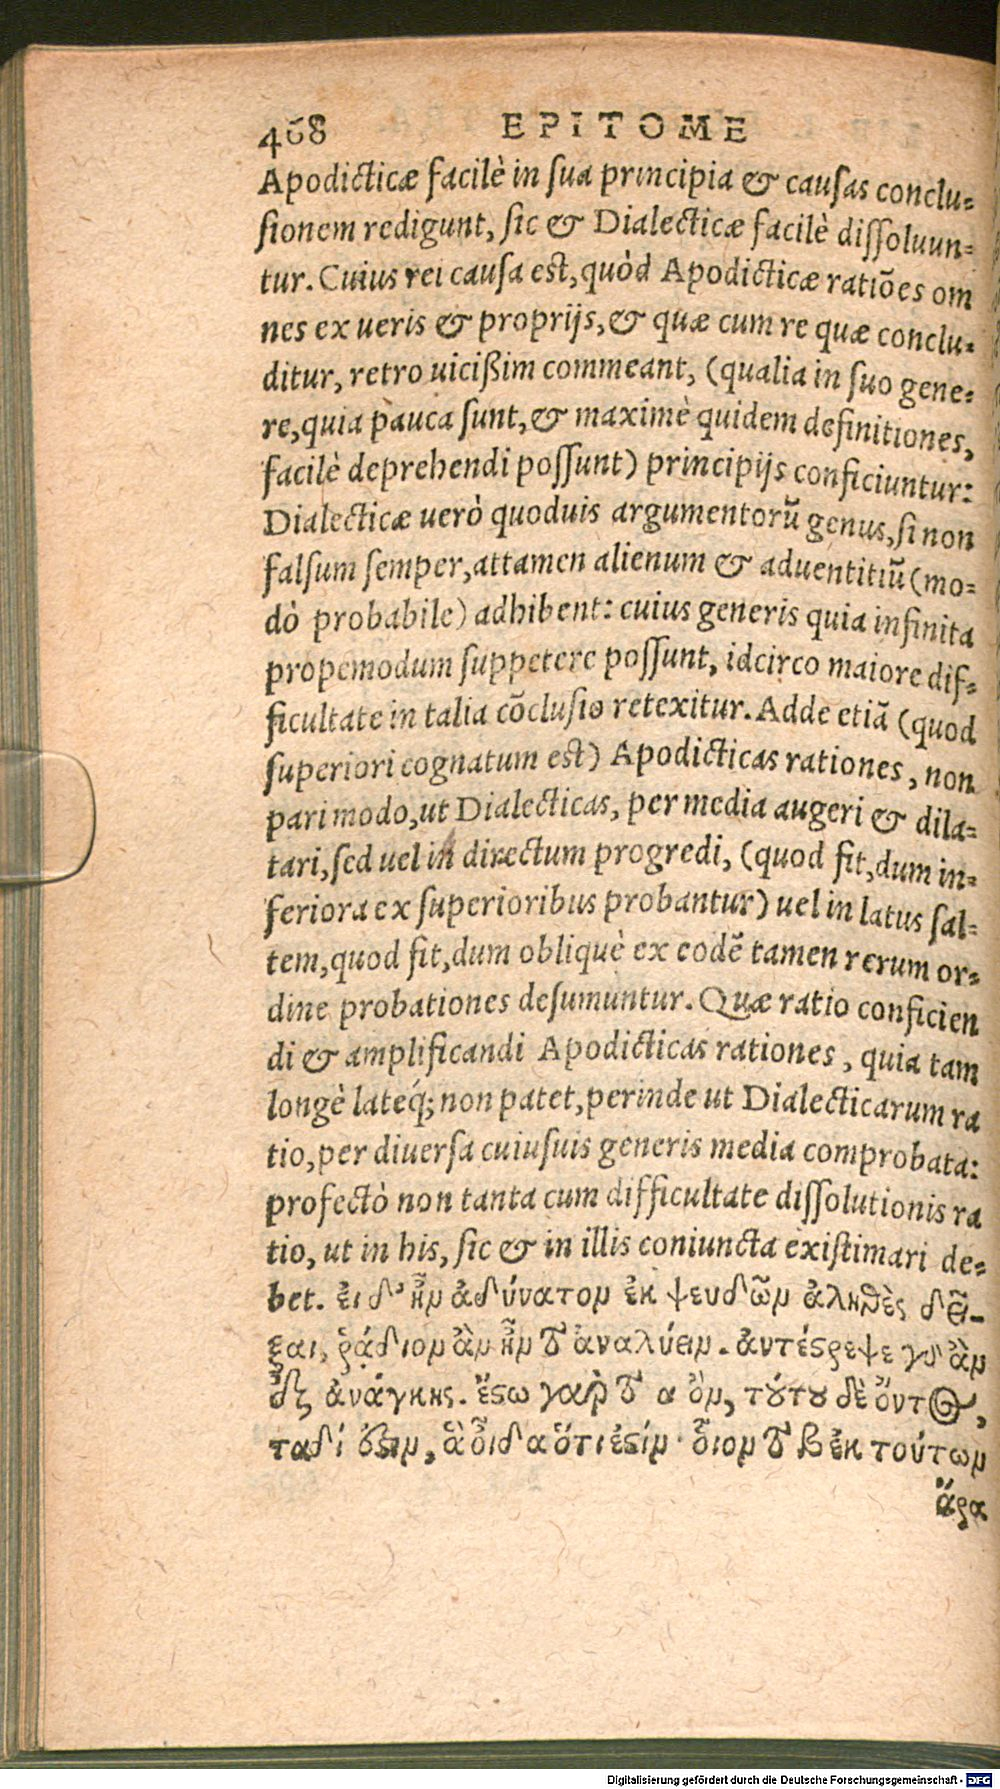 468 EPITOME
Apodicticæ facilè in sua principia & causas conclu-
sionem redigunt, sic & Dialecticæ facilè dissoluun-
tur. Cuius rei causa est, quòd Apodicticæ ratiões om
nes ex ueris & proprijs, & quæ cum re quæ conclu-
ditur, retro uicißim commeant, (qualia in suo gene-
re, quia pauca sunt, & maximè quidem definitiones,
facilè deprehendi possunt) principijs conficiuntur:
Dialecticæ uerò quoduis argumentorũ genus, si non
falsum semper, attamen alienum & aduentitiũ (mo-
dò probabile) adhibent: cuius generis quia infinita
propemodum suppetere possunt, idcirco maiore dif-
ficultate in talia cõclusio retexitur. Adde etiã (quod
superiori cognatum est) Apodicticas rationes, non
pari modo, ut Dialecticas, per media augeri & dila-
tari, sed uel in directum progredi, (quod fit, dum in-
feriora ex superioribus probantur) uel in latus sal-
tem, quod fit, dum obliquè ex eodẽ tamen rerum or-
dine probationes desumuntur. Quæ ratio conficien
di & amplificandi Apodicticas rationes, quia tam
longè lateq́; non patet, perinde ut Dialecticarum ra
tio, per diuersa cuiusuis generis media comprobata:
profectò non tanta cum difficultate dissolutionis ra
tio, ut in his, sic & in illis coniuncta existimari de-
bet. ἐι δ' ἦν ἀδύνατον ἐκ ψευδῶν ἀληθὲς δεῖ-
ξαι, ῥάδιον ἂν ἦν τὸ ἀναλύειν. ἀντέστρεφε γὸ ἂν
ἐξ ἀνάγκης. ἔστω γαρ̀ τὸ α ὂν, τούτου δὲ ὄντος,
ταδί ἐστιν, ἃ οἶδα ὅτι ἐστίν· οἷον τὸ β ἐκ τούτων
ἄρα
Digitalisierung gefördert durch die Deutsche Forschungsgemeinschaft - DFG